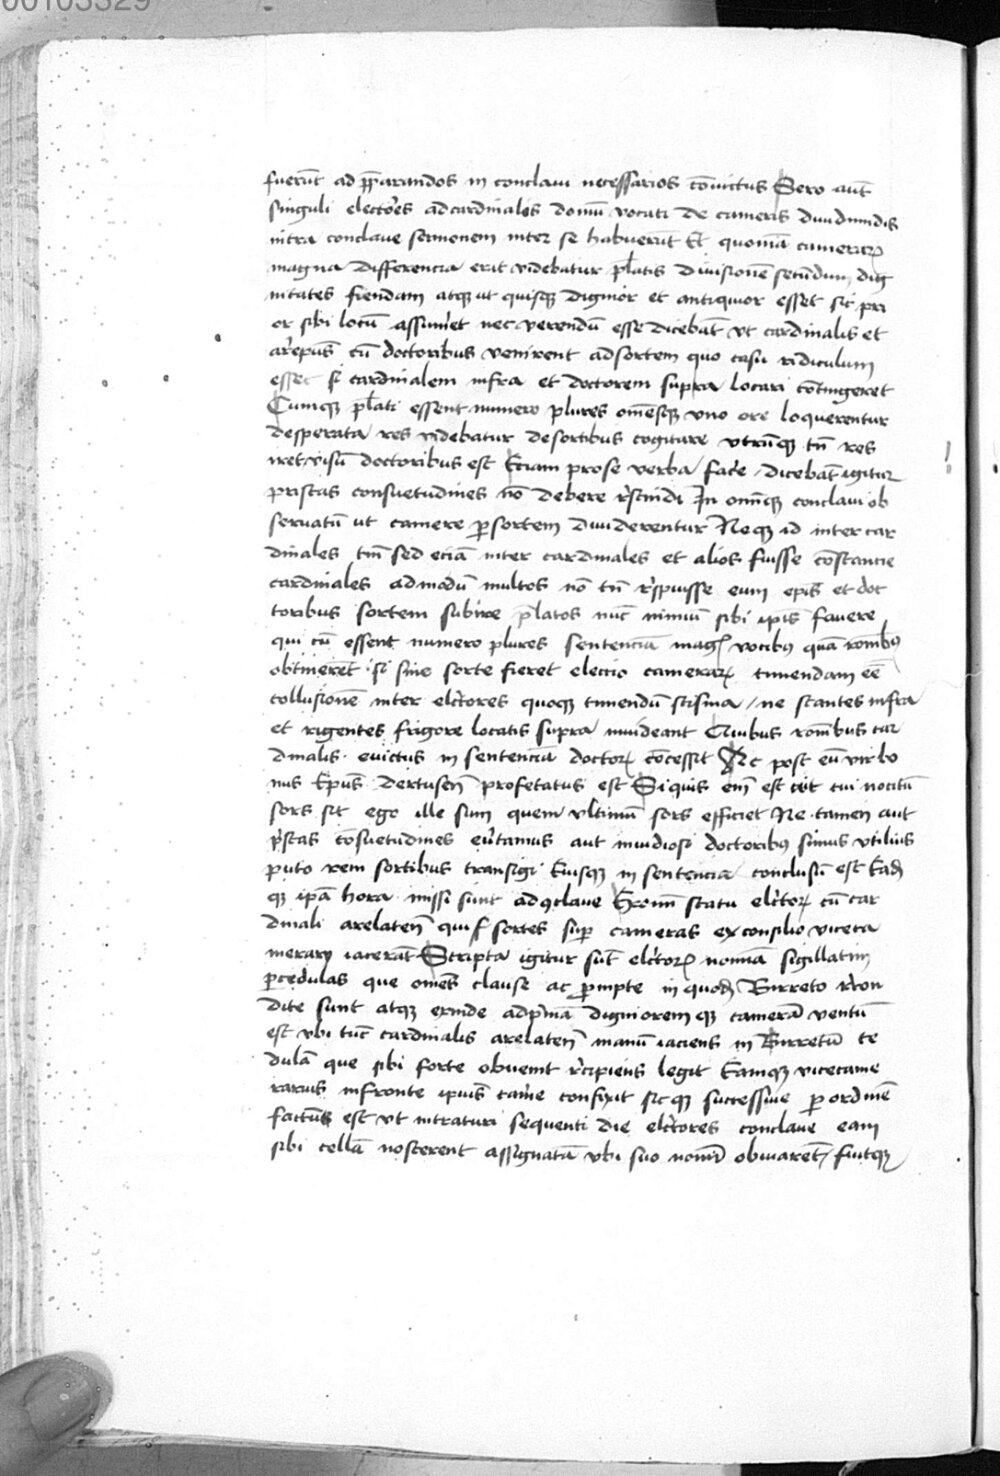 00103329
fuerūt ad p̄parandos in conclaui necessarios cōuictus Sero aūt
singuli electōes ad cardinales domū vocati de cameris diuidundis
intra conclaue sermonem inter se habuerūt Et quoniā cameraꝝ
magna differencia erit videbatur p̄latis diuisionē secūdum dig
nitates fiendam atqꝫ ut quisqꝫ dignior et antiquior esset sic pri
or sibi locū assumēt nec verendū esse dicebāt vt cardinalis et
arēpūs cū doctoribus venirent ad sortem quo casu ridiculum
esset si cardinalem infra et doctorem supra locari cōtingeret
Cumqꝫ p̄lati essent numero plures om̄esqꝫ vno ore loquerentur
desperata res videbatur de sortibus cogitare vtrūqꝫ tn̄ res
visū doctoribus est Etiam pro se verba facēe dicebāt igitur
priscas consuetudines nō debere rēscindi In om̄iqꝫ conclaui ob
seruatū ut camere ꝑ sortem diuiderentur Neqꝫ id inter car
dinales tm̄ sed eciā inter cardinales et alios fuisse cōstancie
cardinales admodū multos nō tn̄ rēspuisse cum ep̄is et doc
toribus sortem subire p̄latos nūc nimiū sibi ip̄is fauere
qui cū essent numero plures sentenciā magꝭ vocibꝰ quā rōnibꝰ
obtinerēt si sine sorte fieret electio cameraꝝ timendam eē
collusionē inter elctōres quoqꝫ timendū scisma ne stantes infra
et rigentes frigore locatis supra inuideant Quibus rōnibus car
dinalis euictus in sentenciā doctoꝝ cōcessit Ac post eū vir bo
nus Ep̄us dertusen̄ profetatus est Si quis em̄ est cui nocitū
sors sit ego ille sum quem vltimū sors efficiet Ne tamen aut
p̄scas cōsuetudines euītamus aut inuidiosi doctoribꝰ simus vtilius
puto rem sortibus transigi Eiusqꝫ in sentencia conclusū est Eadē
qꝫ ip̄a hora missi sunt ad ꝯclaue statu elctōꝝ cū car
dinali arelaten̄ qui sortes suꝑ cameras ex consilio viceca
merary iacerāt Scripta igitur sūt elctōꝝ nomīa sigillatim
ꝑ cedulas que om̄es clause ac in quodā Birreto rēcon
dite sunt atqꝫ exinde ad p̄mā digniorem qꝫ camerā ventū
est vbi tūc cardinalis arelaten̄ manū iaciens in Birretū ce
dulā que sibi forte obuenit rēcipiens legit Eamqꝫ vicecame
rarius in fronte ipius camēe confixit sicqꝫ successiue ꝑ ordinē
factūs est vt intraturi sequenti die elctōres conclaue eam
sibi cellā noscerent assignatā vbi suo nomī obuiarent fuitqꝫ